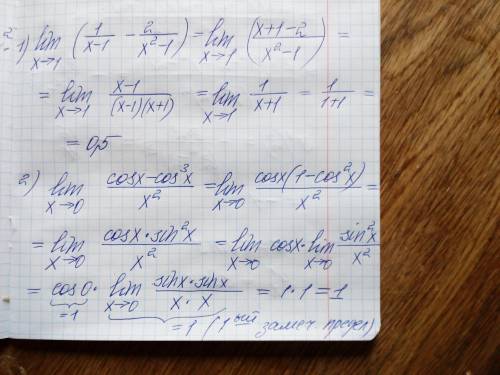 1) lim x→1 (1/(x-1) - 2/(x²-1)) = lim x→1 ((x+1-2)/(x²-1)) =
= lim x→1 (x-1)/((x-1)(x+1)) = lim x→1 1/(x+1) = 1/(1+1) =
= 0,5
2) lim x→0 (cosx-cos³x)/x² = lim x→0 (cosx(1-cos²x))/x² =
= lim x→0 (cosx·sin²x)/x² = lim x→0 cosx · lim x→0 sin²x/x²
= cos0 · lim x→0 (sinx·sinx)/(x·x) = 1·1 = 1
=1 =1 (1ый замеч. предел)